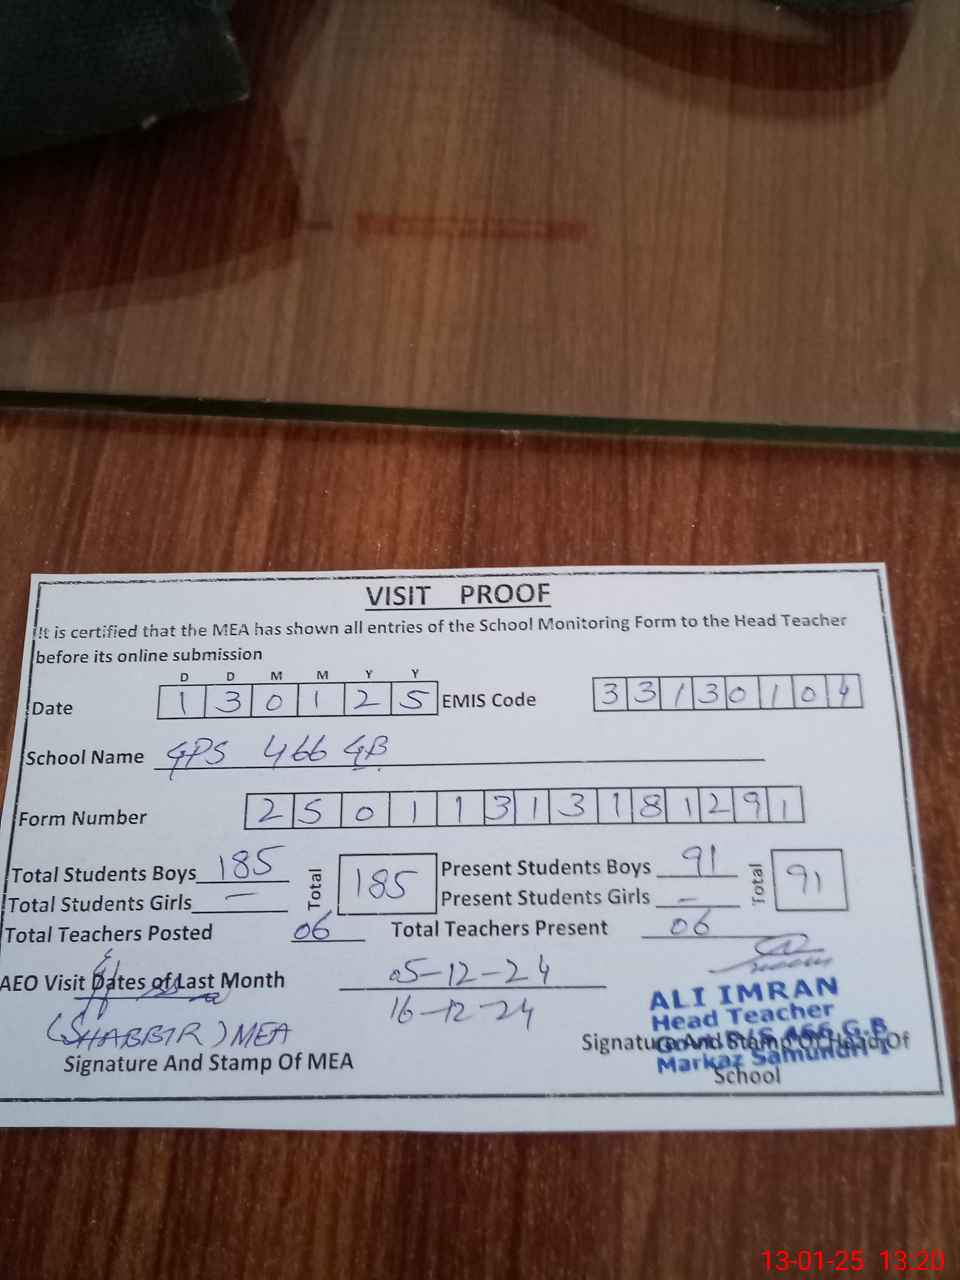 VISIT PROOF
It is certified that the MEA has shown all entries of the School Monitoring Form to the Head Teacher
before its online submission
D D M M Y Y
Date 1 3 0 1 2 5 EMIS Code 3 3 1 3 0 1 0 4
School Name GPS 466 GB
Form Number 2 5 0 1 1 3 1 3 1 8 1 2 9 1
Total Students Boys 185 Total 185 Present Students Boys 91 Total 91
Total Students Girls — Present Students Girls —
Total Teachers Posted 06 Total Teachers Present 06
AEO Visit Dates of Last Month 05-12-24
16-12-24
(SHABBIR) MEA
Signature And Stamp Of MEA
ALI IMRAN
Head Teacher
Govt P/S 466 G.B
Markaz Samundri
Signature And Stamp Of Head Of
School
13-01-25 13:20